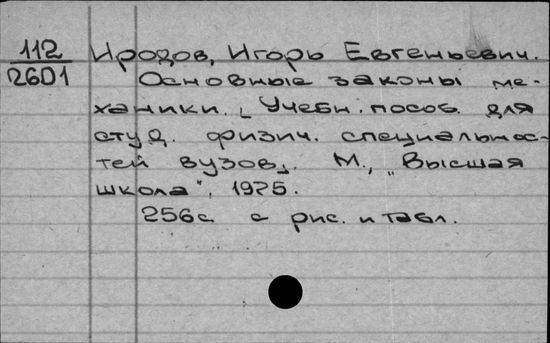 112 Иродов, Игорь Евгеньевич.
2601 Основные законы ме-
ханики. [Учебн. пособ. для
студ. физич. специальнос-
тей вузов]. М., "Высшая
школа", 1975.
256с. с рис. и табл.